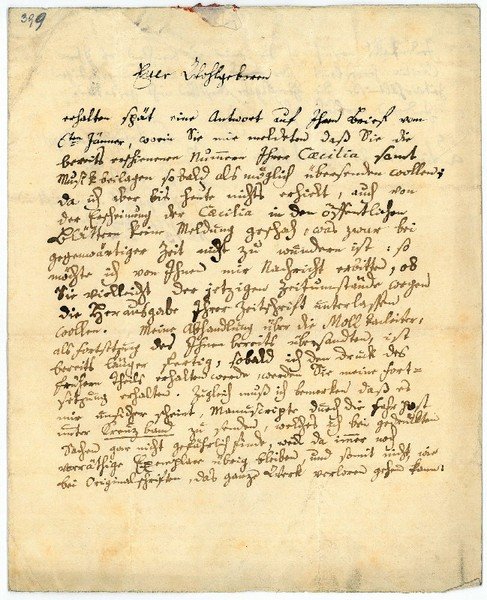 399
Euer Wohlgeboren
erhalten spät eine Antwort auf Ihren Brief vom
6ten Jänner, worin Sie mir meldeten daß Sie die
bereits erschienenen Nummern Ihrer Cæcilia samt
Musikbeilagen sobald als möglich übersenden wollen;
da ich aber bis heute nichts erhielt, auch von
der Erscheinung der Cæcilia in den öffentlichen
Blättern keine Meldung geschah, was zwar bei
gegenwärtiger Zeit nicht zu wundern ist: so
möchte ich von Ihnen mir Nachricht erbitten, ob
Sie vielleicht der jetzigen Zeitumstände wegen
die Herausgabe Ihrer Zeitschrift unterlassen
wollen. Meine Abhandlung über die Molltonleiter,
als Fortsetzung der Ihnen bereits übersandten, ist
bereits länger fertig, sobald ich den Druck des
frühern Theils erhalten werde, werden Sie meine Fort=
setzung erhalten. Zugleich muß ich bemerken daß es
mir unsicher scheint, Manuscripte durch die fahrpost
unter Kreuzband zu senden, welches ich bei gedruckten
Sachen gar nicht gefährlich finde, weil da immer noch
vorräthige Exemplare übrig bleiben und somit nicht, wie
bei Originalschriften, das ganze Werk verloren gehen kann.